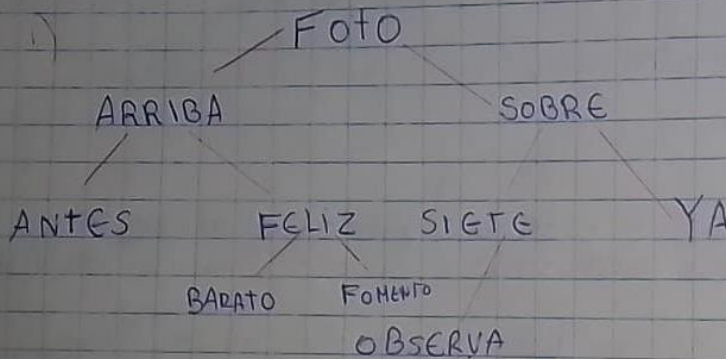 1)
FOTO
ARRIBA SOBRE
ANTES FELIZ SIETE YA
BARATO FOMENTO
OBSERVA